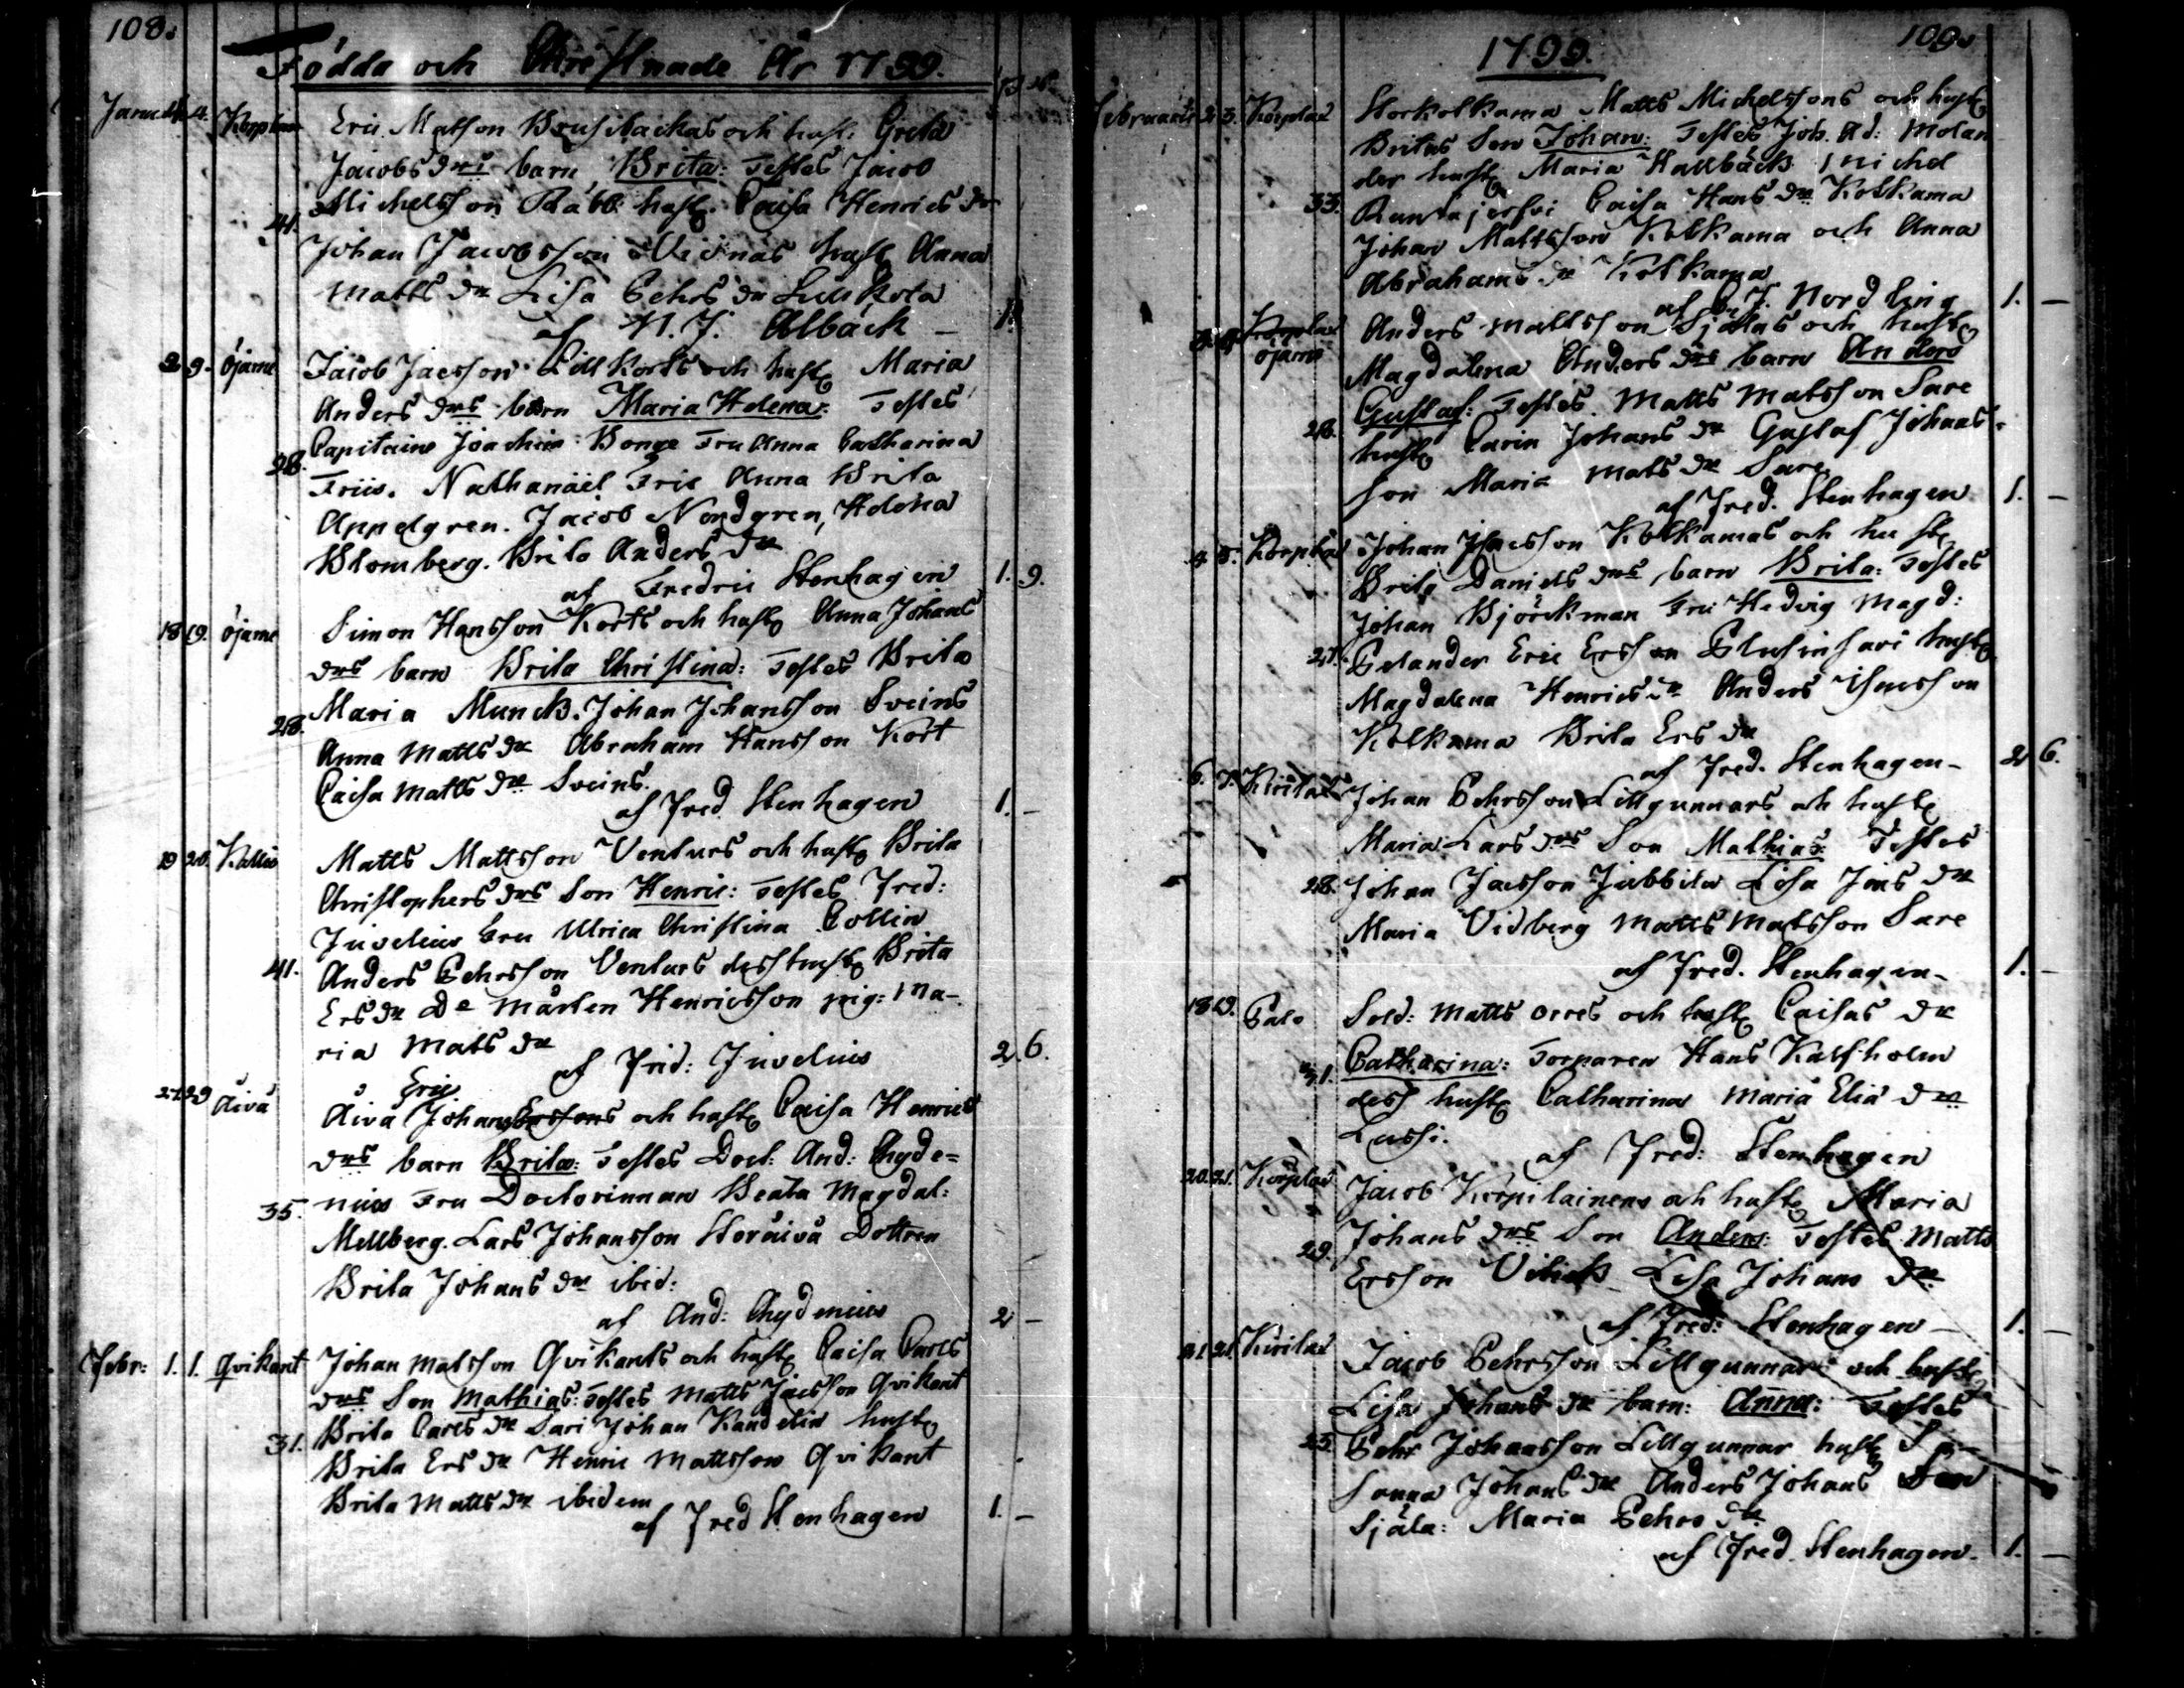 108.
Födda och Christnade År 1799.
Januarii 4. Korplax Eric Matson Brusibackas och hust: Greta
Jacobs drs barn Brita: Testes Jacob
Michelsson Räbb hust. Caisa Henrics dr
41.
Johan Jacobsson hust Anna
Matts dr Lisa Pehrs dr
af N. J. Albäck – 1.
9. Öjamo Jacob Jacsson Lill Korts och hust Maria
Anders drs barn Maria Helena: Testes
Capitaine Joachim Bonge Fru Anna Catharina
28.
Friis. Nathanaël Friis Anna Brita
Appelgren. Jacob Nordgren, Helena
Blomberg. Brita Anders dr
af Fredric Stenhagen 1. 9.
18 19. Öjamo Simon Hansson Korts och hust Anna Johans
drs barn Brita Christina: Testes Brita
Maria Munck. Johan Johansson Sveins
28.
Anna Matts dr Abraham Hansson Kort
Caisa Matts dr Sveins.
af Fred Stenhagen 1. –
19 20. Kallis Matts Mattsson Venturs och hust Brita
Christophers drs Son Henric: Testes Fred:
Juvelius Fru Ulrica Christina Collin
41. Anders Pehrsson Venturs dess hust Brita
Ers dr De Mårten Henricsson pig: Ma-
ria Mats dr
af Frid: Juvelius 2. 6.
27 29 Äivä Äivä Johan Eric Erssons och hust Caisa Henrics
drs barn Brita: Testes Doct: And: Chyde=
35. nius Fru Doctorinnan Beata Magdal:
Mellberg. Lars Johansson Storäivä Dottren
Brita Johans dr ibid:
af And: Chydenius 2 –
Febr: 1. 1. Qvikant Johan Matsson Qvikants och hust Caisa Carls
drs Son Mathias: Testes Matts Jacsson Qvikant
31. Brita Carls dr Sari Johan Kandelin hust
Brita Ers dr Henric Mattsson Qvikant
Brita Matts dr ibidem
af Fred Stenhagen 1. –
1799. 109.
Februarii 2 3. Korplax Storkolkama Matts Michelssons och hust
Britas Son Johan: Testes Joh. Ad: Molan
der hust Maria Hallbäck Michel
33. Runtujerfvi Caisa Hans dr Kolkama
Johan Mattsson Kolkama och Anna
Abrahams dr Kolkama
af J. Nordling 1. –
Korplax Öjamo Anders Mattsson Själas och hust
Magdalena Anders drs barn Anders
Gustaf: Testes Matts Matsson Sare
28. hust Carin Johans dr Gustaf Johans-
son Maria Mats dr Sare
af Fred. Stenhagen 1. –
4 5. Korplax Johan Isacsson Kolkamas och hust
Brita Daniels drs barn Brita: Testes
Johan Björkman Fru Hedvig Magd:
27. Gelander Eric Ersson hust
Magdalena Henrics dr Anders Isacsson
Kolkama Brita Ers dr
af Fred. Stenhagen – 2 6.
6. 7. Kirilax Johan Pehrsson Lillgunnars och hust
Maria Lars drs Son Mathias: Testes
28. Johan Jacsson Jubbila Lisa Jons dr
Maria Vidberg Matts Matsson Sare
af Fred. Stenhagen – 1. –
18 19. Palo Sold: Matts Orres och hust Caisas dr
31. Catharina: Torparen Hans Kalfholm
dess hust Catharina Maria Eliæ dr
Lassi.
af Fred: Stenhagen
20. 21. Korplax Jacob Korpilainens och hust Maria
29. Johans drs Son Anders: Testes Matts
Ersson Lisa Johans dr
af Fred: Stenhagen – 1. –
21. 21. Kirilax Jacob Pehrsson Lillgunnars och hust
Lisa Johans dr barn: Anna: Testes
25. Pehr Johansson Lillgunnar hust Su-
sanna Johans dr Anders Johans Son
Själa: Maria Pehrs dr
af Fred. Stenhagen. 1. –